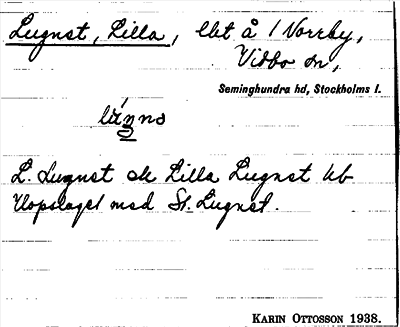 Lugnet, Lilla, lht å 1 Norrby,
Vidbo sn,
Seminghundra hd, Stockholms l.
L. Lugnet ek Lilla Lugnet kb
Upptaget med St. Lugnet.
KARIN OTTOSSON 1938.